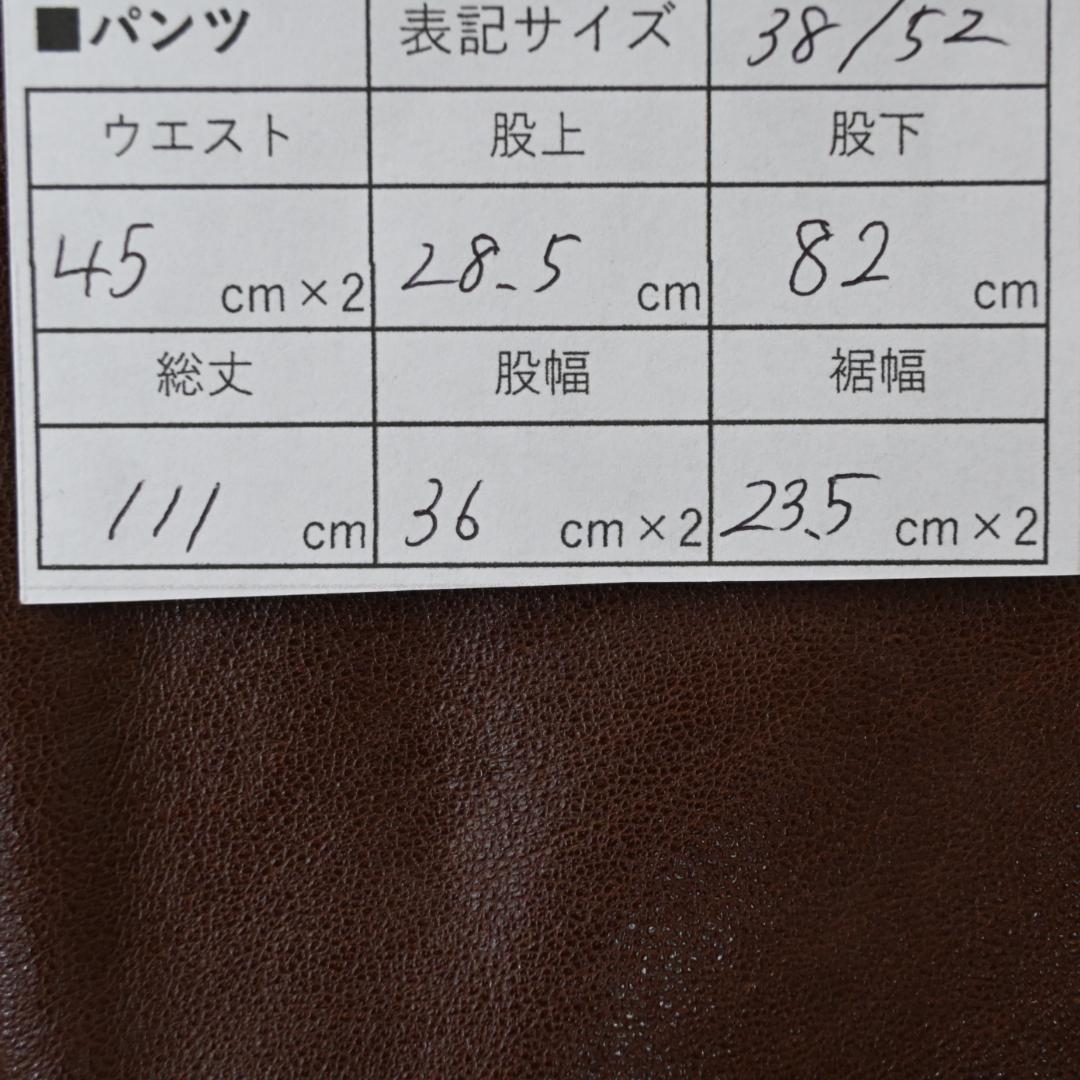 ■パンツ 表記サイズ 38/52
ウエスト 股上 股下
45 cm×2 28.5 cm 82 cm
総丈 股幅 裾幅
111 cm 36 cm×2 23.5 cm×2